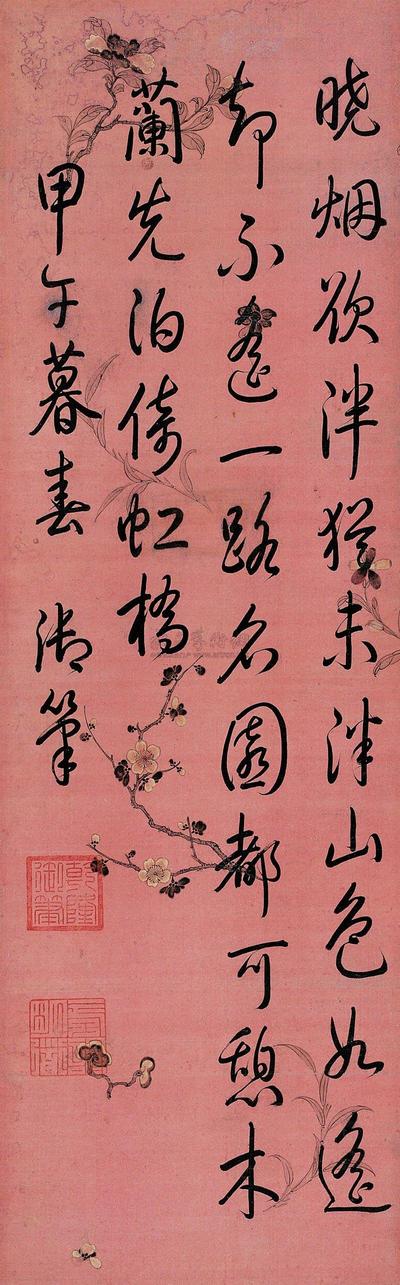 晓烟欲泮猶未泮山色如遙
却不遙一路名園都可憩木
蘭先泊倚虹橋
甲午暮春 御筆
乾隆御筆